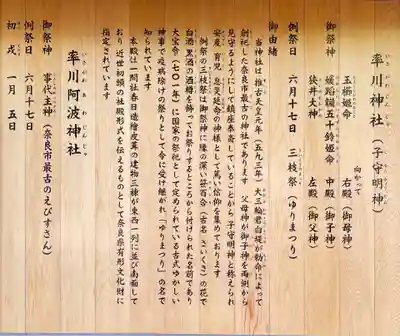 率川神社（子守明神）
いさがわじんじゃ
御祭神
向かって
玉櫛姫命　右殿（御母神）
媛蹈韛五十鈴姫命　中殿（御子神）
狭井大神　左殿（御父神）
例祭日　六月十七日　三枝祭（ゆりまつり）
御由緒
当神社は推古天皇元年（五九三年）大三輪君白堤が勅命によって
創祀した奈良市最古の神社であります　父母神が御子神を両側から
見守るようにして鎮座奉斎していることから子守明神と称えられ
安産　育児　息災延命の神様として篤い信仰を集めております
例祭の三枝祭は御祭神に縁の深い笹百合（古名　さいくさ）の花で
白酒黒酒の酒樽を飾ってお祭りするところから付けられた名前であり
大宝令（七〇一年）に国家の祭祀として定められている古式ゆかしい
神事で疫病除けの祭りとして今に受け継がれ「ゆりまつり」の名で
知られています
本殿は一間社春日造檜皮葺の建物三棟が東西一列に並び南面して
おり近世初頭の社殿形式を伝えるものとして奈良県有形文化財に
指定されています
率川阿波神社
いさがわあわじんじゃ
御祭神　事代主神（奈良市最古のえびすさん）
例祭日　六月十七日
初戎　一月五日